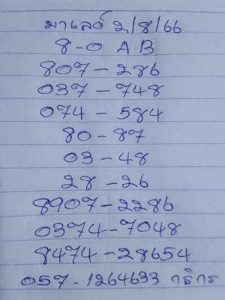 มาเลย์ 2/8/66
8-0 A B
807-286
037-748
074-584
80-87
03-48
28-26
8907-2286
0374-7048
8474-28654
057-1264633